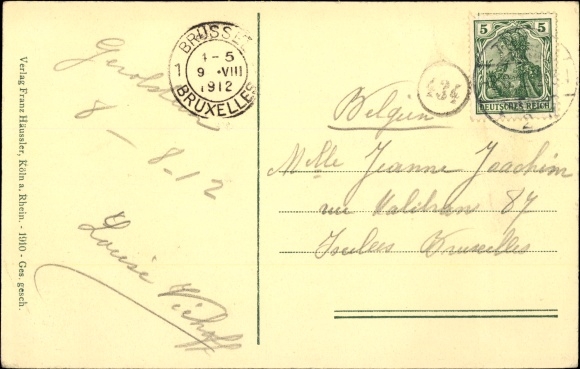 Verlag Franz Häussler, Köln a. Rhein. - 1910 - Ges. gesch.
8 - 8.12
Louise
BRUSSEL
1 4-5
9 VIII
1912
BRUXELLES
134
5 5
DEUTSCHES REICH
Belgien
Melle Jeanne Joachim
rue Malibran 87
Ixelles Bruxelles